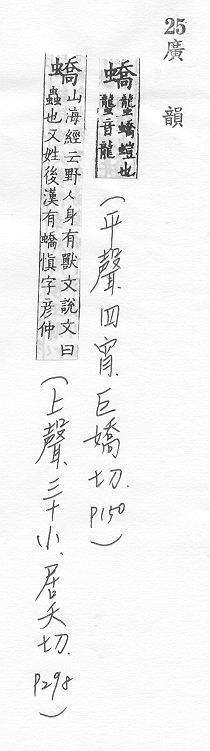 25 廣韻
蟜 蠪蟜螘也
蠪音龍
(平聲四宵、巨嬌切. P150)
蟜 山海經云野人身有獸文說文曰
蟲也又姓後漢有蟜慎字彥仲
(上聲、三十小、居夭切. P298)